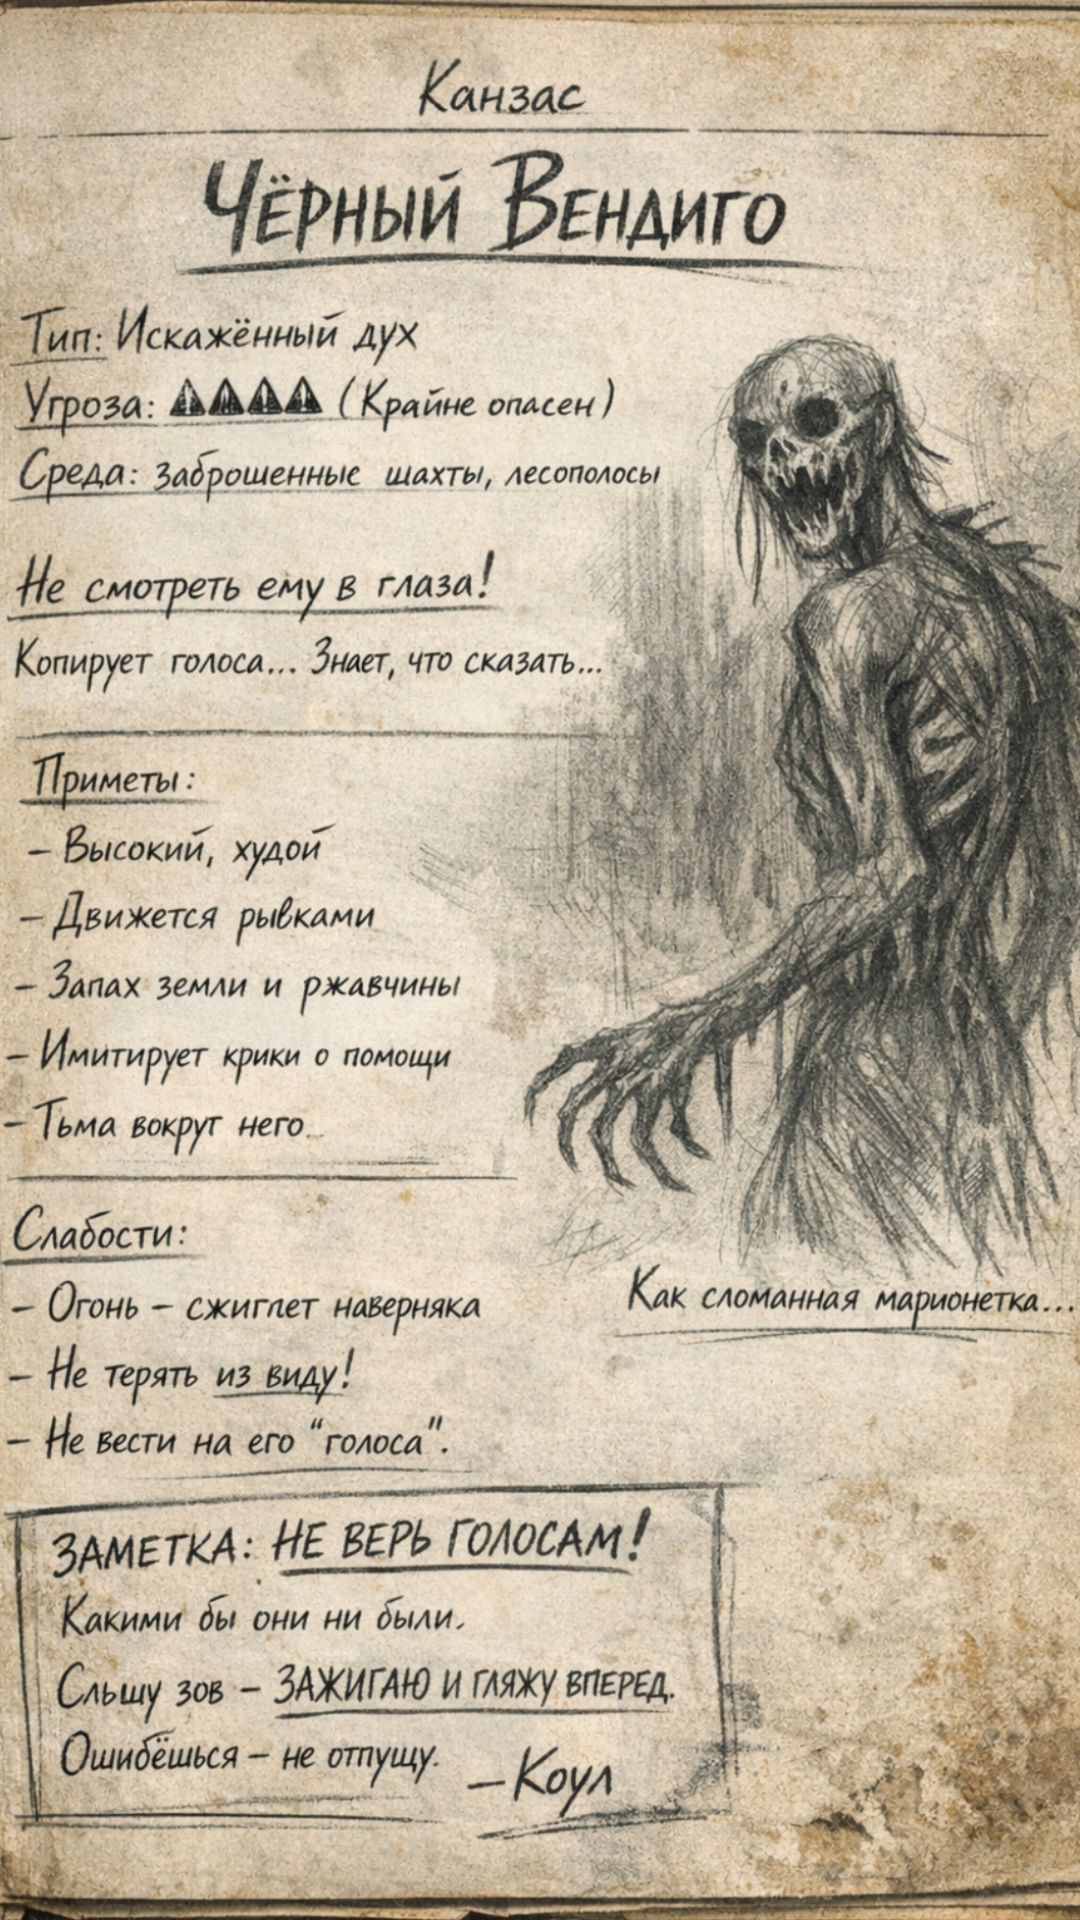 Канзас
Чёрный Вендиго
Тип: Искажённый дух
Угроза: (Крайне опасен)
Среда: заброшенные шахты, лесополосы
Не смотреть ему в глаза!
Копирует голоса... Знает, что сказать...
Приметы:
- Высокий, худой
- Движется рывками
- Запах земли и ржавчины
- Имитирует крики о помощи
- Тьма вокруг него
Слабости:
- Огонь - сжигпет наверняка
- Не терять из виду!
- Не вести на его "голоса".
Как сломанная марионетка...
ЗАМЕТКА: НЕ ВЕРЬ ГОЛОСАМ!
Какими бы они ни были.
Сльшу зов - ЗАЖИГАЮ И ГЛЯЖУ ВПЕРЕД.
Ошибёшься - не отпущу.
- Коул